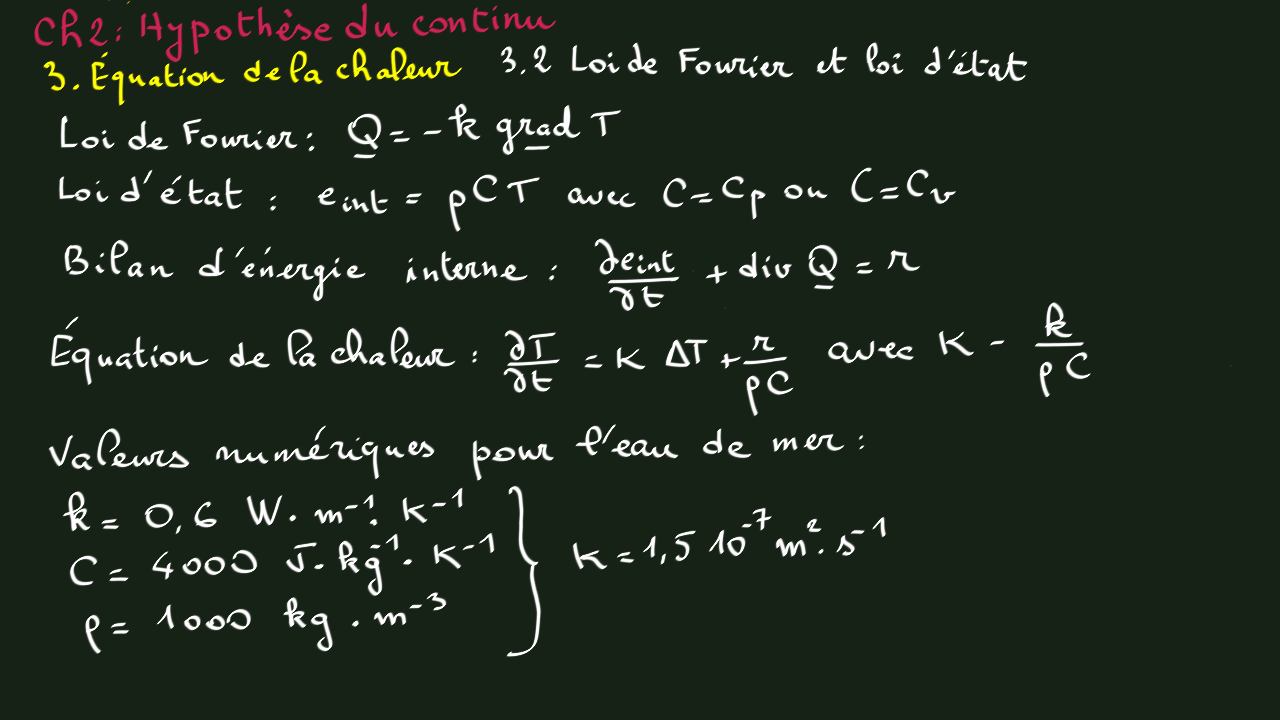 Ch2: Hypothèse du continu
3. Équation de la chaleur 3.2 Loi de Fourier et loi d'état
Loi de Fourier: Q = - k grad T
Loi d'état : e_int = ρCT avec C=C_p ou C=C_v
Bilan d'énergie interne : ∂e_int/∂t + div Q = r
Équation de la chaleur : ∂T/∂t = K ΔT + r/ρC avec K - k/ρC
Valeurs numériques pour l'eau de mer :
k = 0,6 W. m⁻¹. K⁻¹
C = 4000 J. kg⁻¹. K⁻¹
K = 1,5 10⁻⁷ m². s⁻¹
ρ = 1000 kg . m⁻³